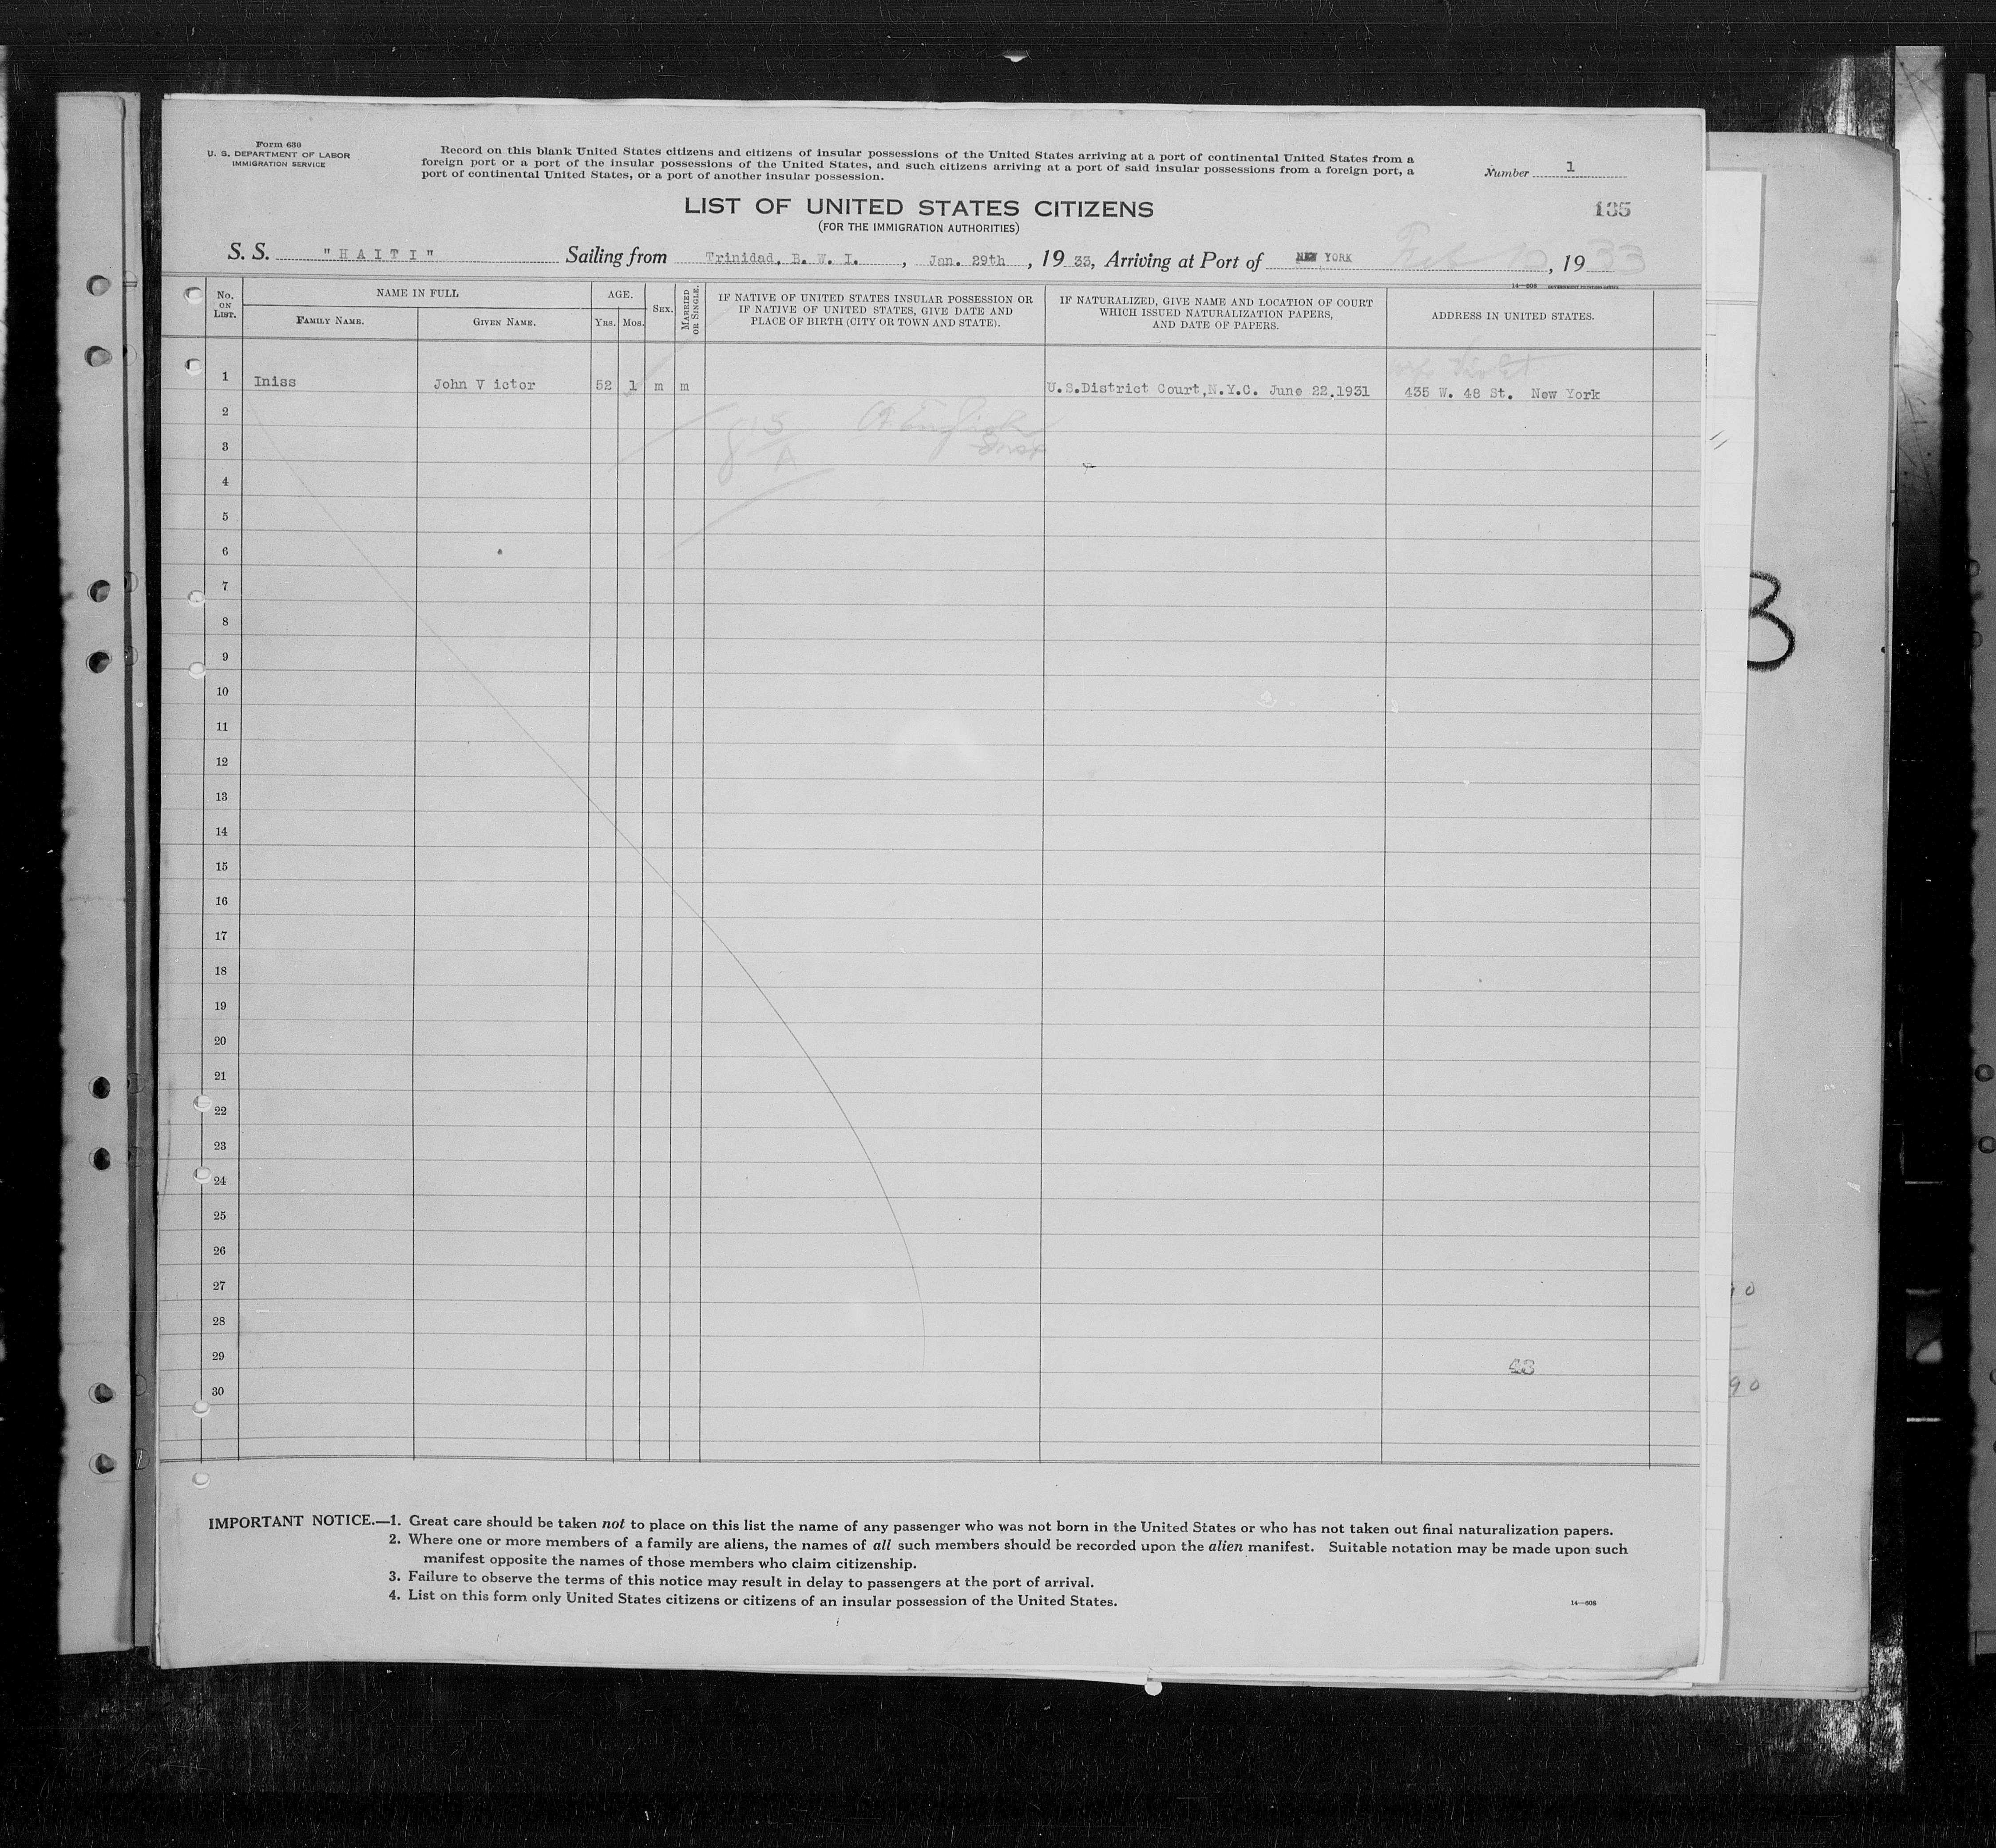 Form 630
U. S. DEPARTMENT OF LABOR
IMMIGRATION SERVICE
Record on this blank United States citizens and citizens of insular possessions of the United States arriving at a port of continental United States from a
foreign port or a port of the insular possessions of the United States, and such citizens arriving at a port of said insular possessions from a foreign port, a
port of continental United States, or a port of another insular possession.
Number 1
LIST OF UNITED STATES CITIZENS
(FOR THE IMMIGRATION AUTHORITIES)
135
S. S. "HAITI" Sailing from Trinidad, B. W. I., Jan. 29th, 1933, Arriving at Port of NEW YORK Feb 10, 1933
14—608 GOVERNMENT PRINTING OFFICE
No. ON LIST.
NAME IN FULL
FAMILY NAME.
GIVEN NAME.
AGE.
YRS. MOS.
SEX.
MARRIED OR SINGLE.
IF NATIVE OF UNITED STATES INSULAR POSSESSION OR
IF NATIVE OF UNITED STATES, GIVE DATE AND
PLACE OF BIRTH (CITY OR TOWN AND STATE).
IF NATURALIZED, GIVE NAME AND LOCATION OF COURT
WHICH ISSUED NATURALIZATION PAPERS,
AND DATE OF PAPERS.
ADDRESS IN UNITED STATES.
1 Iniss John V ictor 52 1 m m U.S.District Court,N.Y.C. June 22,1931 435 W. 48 St. New York
2
A. English
3
4
5
6
7
8
9
10
11
12
13
14
15
16
17
18
19
20
21
22
23
24
25
26
27
28
29
43
30
IMPORTANT NOTICE.—1. Great care should be taken not to place on this list the name of any passenger who was not born in the United States or who has not taken out final naturalization papers.
2. Where one or more members of a family are aliens, the names of all such members should be recorded upon the alien manifest. Suitable notation may be made upon such
manifest opposite the names of those members who claim citizenship.
3. Failure to observe the terms of this notice may result in delay to passengers at the port of arrival.
4. List on this form only United States citizens or citizens of an insular possession of the United States.
14—608
3
90